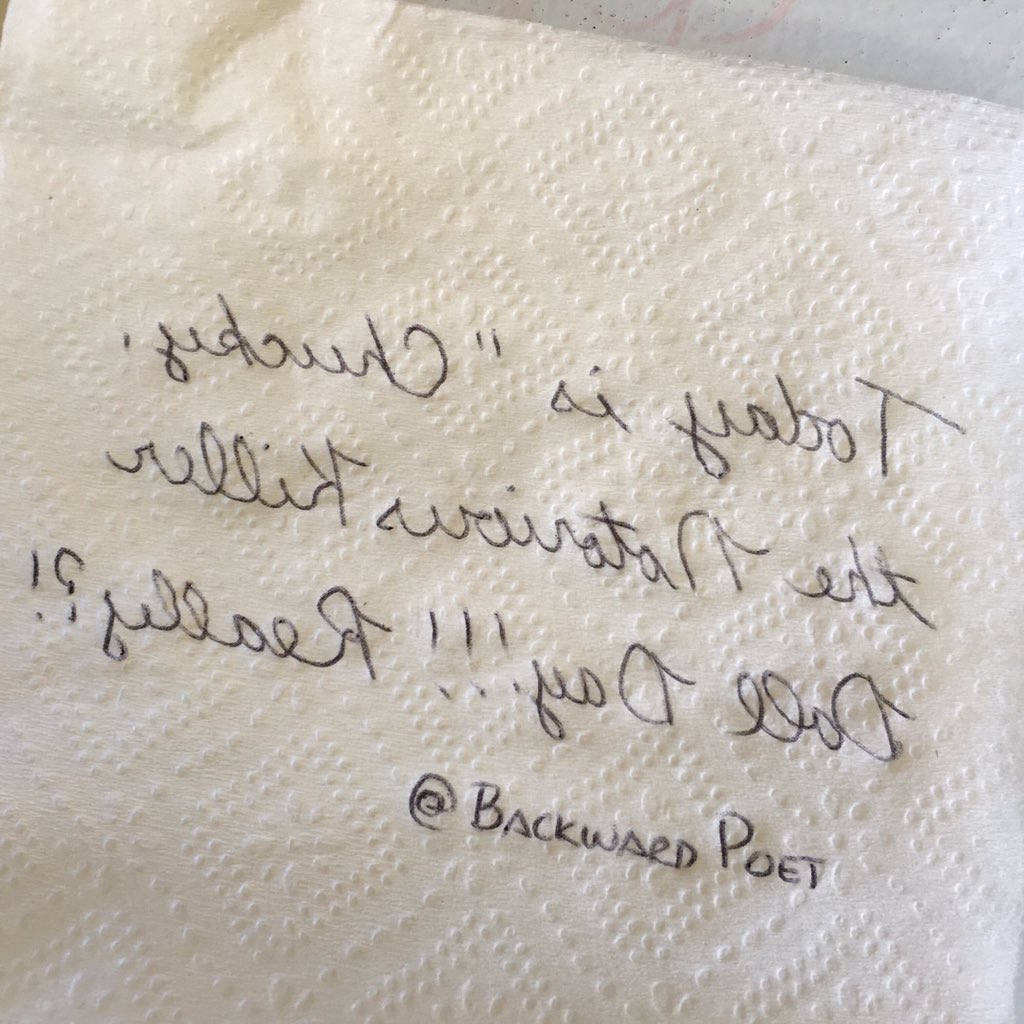 Today is "Chucky,
the Notorious Killer
Doll Day!!!! Really?!
@BACKWARD POET